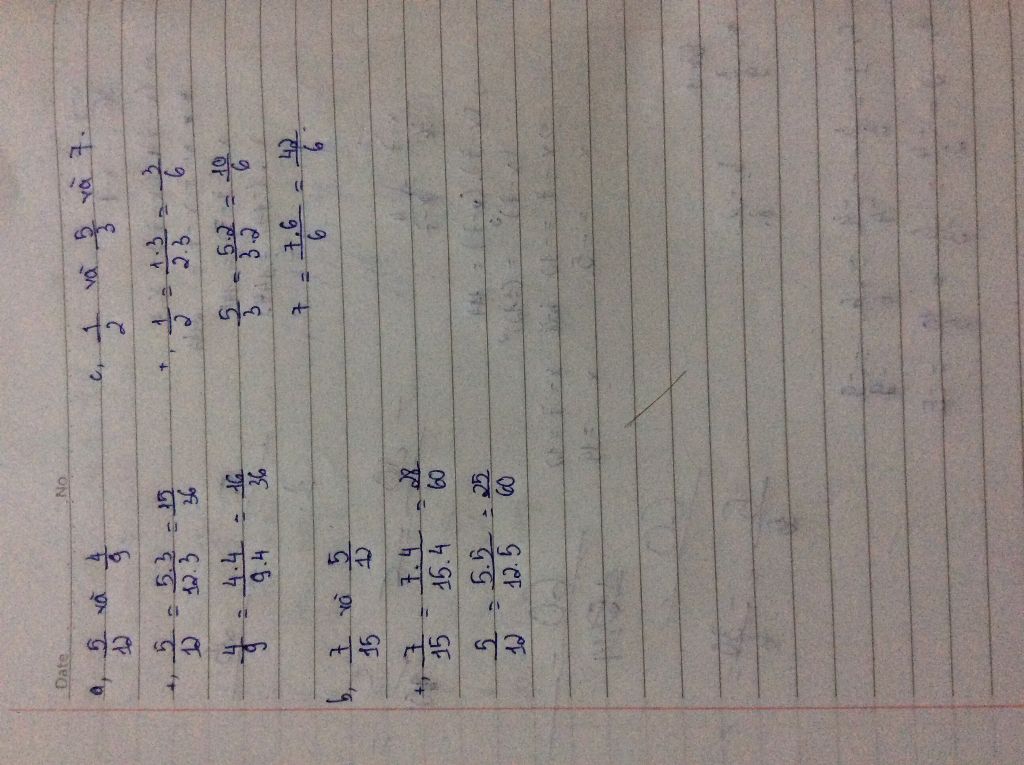 Date No
a, 5/12 và 4/9
+, 5/12 = 5.3/12.3 = 15/36
4/9 = 4.4/9.4 = 16/36
b, 7/15 và 5/12
+, 7/15 = 7.4/15.4 = 28/60
5/12 = 5.5/12.5 = 25/60
c, 1/2 và 5/3 và 7.
+, 1/2 = 1.3/2.3 = 3/6
5/3 = 5.2/3.2 = 10/6
7 = 7.6/6 = 42/6.